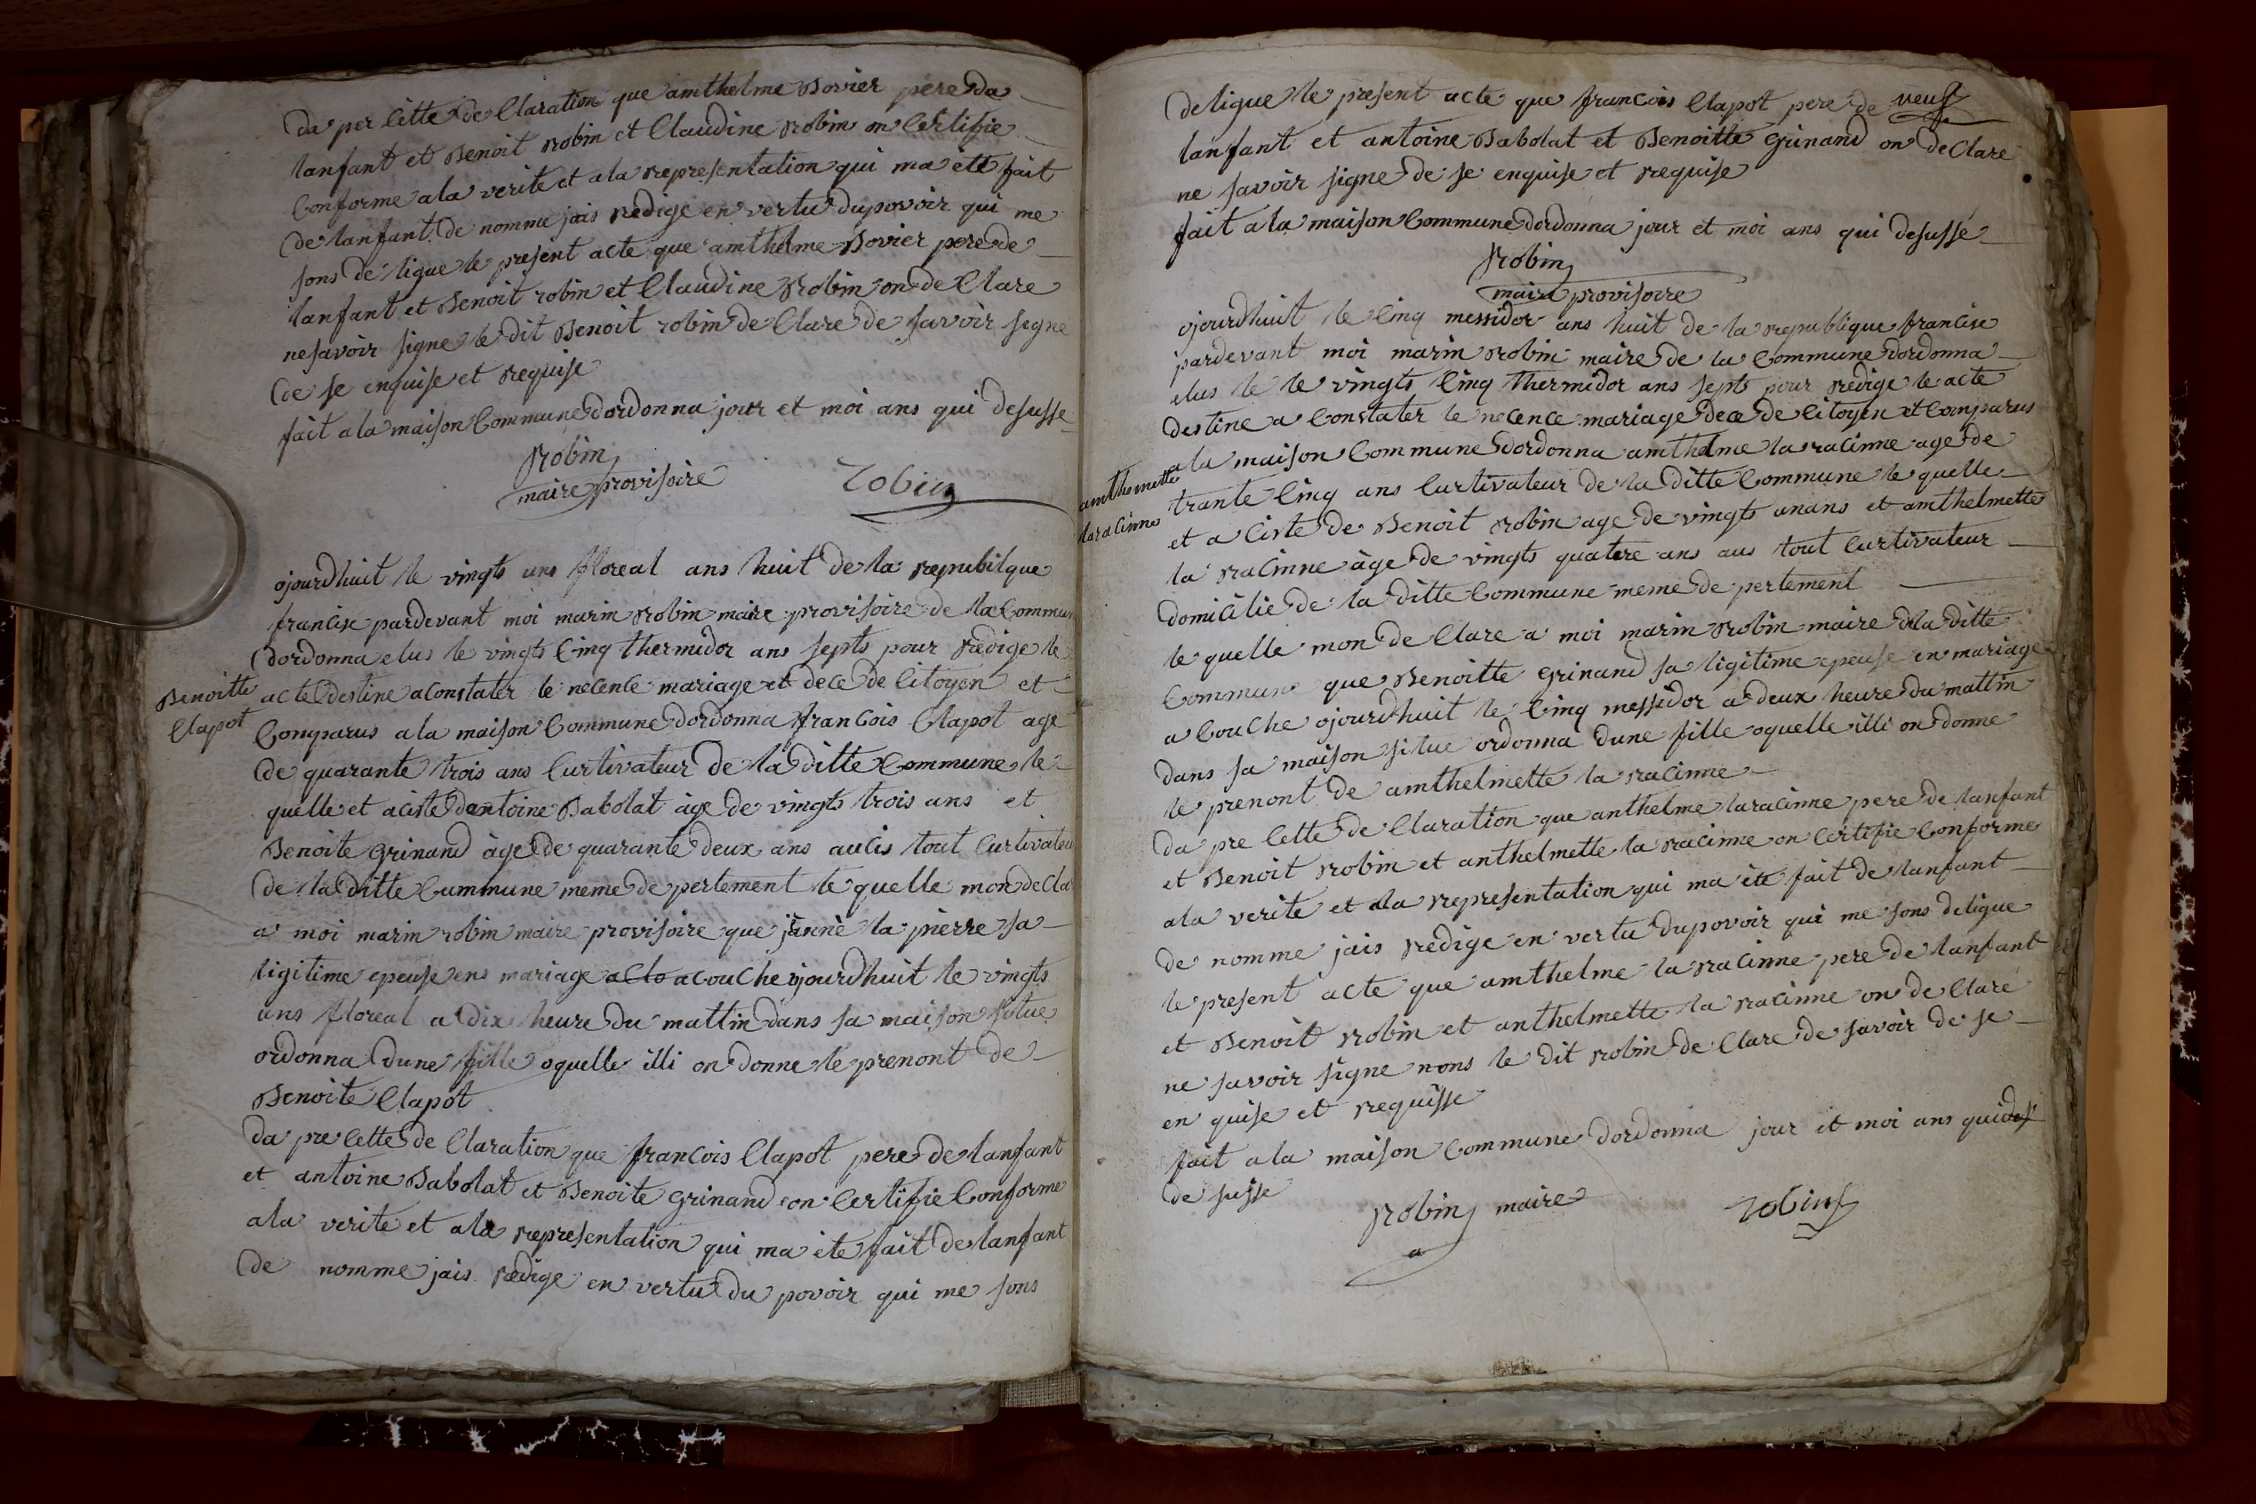 da per Cette de Claration que amthelme Bovier pere da
lanfant et Benoit robin et Claudine Robin on Certifie
Conforme a la verite et a la representation qui ma ète fait
de lanfant de nomme jais redige en vertu dupovoir qui me
sons de ligue le present acte que amthelme Bovier pere de
lanfant et Benoit robin et Claudine Robin on de Clare
ne savoir signe le dit Benoit robin de Clare de savoir signe
de se enquise et requise
fait a la maison Commune dordonna jour et moi ans qui desusse
Robin
maire provisoire
robin
ojourdhuit le vingts uns floreal ans huit de la repubilque
francise pardevant moi marin Robin maire provisoire de la Commun
dordonna elus le vingts Cinq thermidor ans septs pour redige le
Benoitte
Clapot
acte destine a Constater le necence mariage et dece de Citoyen et
Comparus a la maison Commune dordonna francois Clapot age
de quarante trois ans Curtivateur de la ditte Commune le
quelle et a ciste dantoine Babolat àge de vingts trois ans et
Benoite Grinand àge de quarante deux ans aucis tout Curtivateu
de la ditte Cummune meme de pertement le quelle mon de Cla
a moi marin robin maire provisoire que jannè la pierre sa
ligitime epeuse ens mariage a Clo a couche ojourdhuit le vingts
uns floreal a dix heure du mattin dans sa maison situe
ordonna dune fille oquelle illi on donne le prenont de
Benoite Clapot
da pre Cette de Claration que francois Clapot pere de lanfant
et antoine Babolat et Benoite Grinand on Certifie Conforme
a la verite et a la representation qui ma ète fait de lanfant
de nomme jais redige en vertu du povoir qui me sons
neuf
deligue le present acte que francois Clapot pere de
lanfant et antoine Babolat et Benoitte Grinand on de Clare
ne savoir signe de se enquise et requise
fait a la maison Commune dordonna jour et moi ans qui desusse
Robin
maire provisoire
ojourdhuit le Cinq messidor ans huit de la republique francise
pardevant moi marin robin maire de la Commune dordonna
elus le le vingts Cinq thermidor ans septs pour redige le acte
destine a Constater le necence mariage dece de Citoyen et Comparus
a la maison Commune dordonna amthelme la racinne age de
amthemette
laracinne
trante Cinq ans Curtivateur de la ditte Commune le quelle
et a Ciste de Benoit Robin age de vingts unans et amthelmette
la racinne àge de vingts quatere ans aus tout Curtivateur
domicilie de la ditte Commune meme de pertement
le quelle mon de Clare a moi marin Robin maire dela ditte
Commune que Benoitte Grinand sa ligitime epeuse en mariage
a Couche ojourdhuit le Cinq messidor a deux heure du mattin
dans sa maison situe ordonna dune fille oquelle illi on donne
le prenont de amthelmette la racinne
da pre Cette de Claration que anthelme laracinne pere de lanfant
et Benoit Robin et anthelmette la racinne on Certifie Conforme
a la verite et ala representation qui ma ète fait de lanfant
de nomme jais redige en vertu dupovoir qui me sons deligue
le present acte que amthelme la racinne pere de lanfant
et Benoit Robin et anthelmette la racinne on de Clare
ne savoir signe nons le dit Robin de Clare de savoir de se
en quise et requisse
fait a la maison Commune dordonna jour et moi ans qui des
de susse
Robin maire
robin